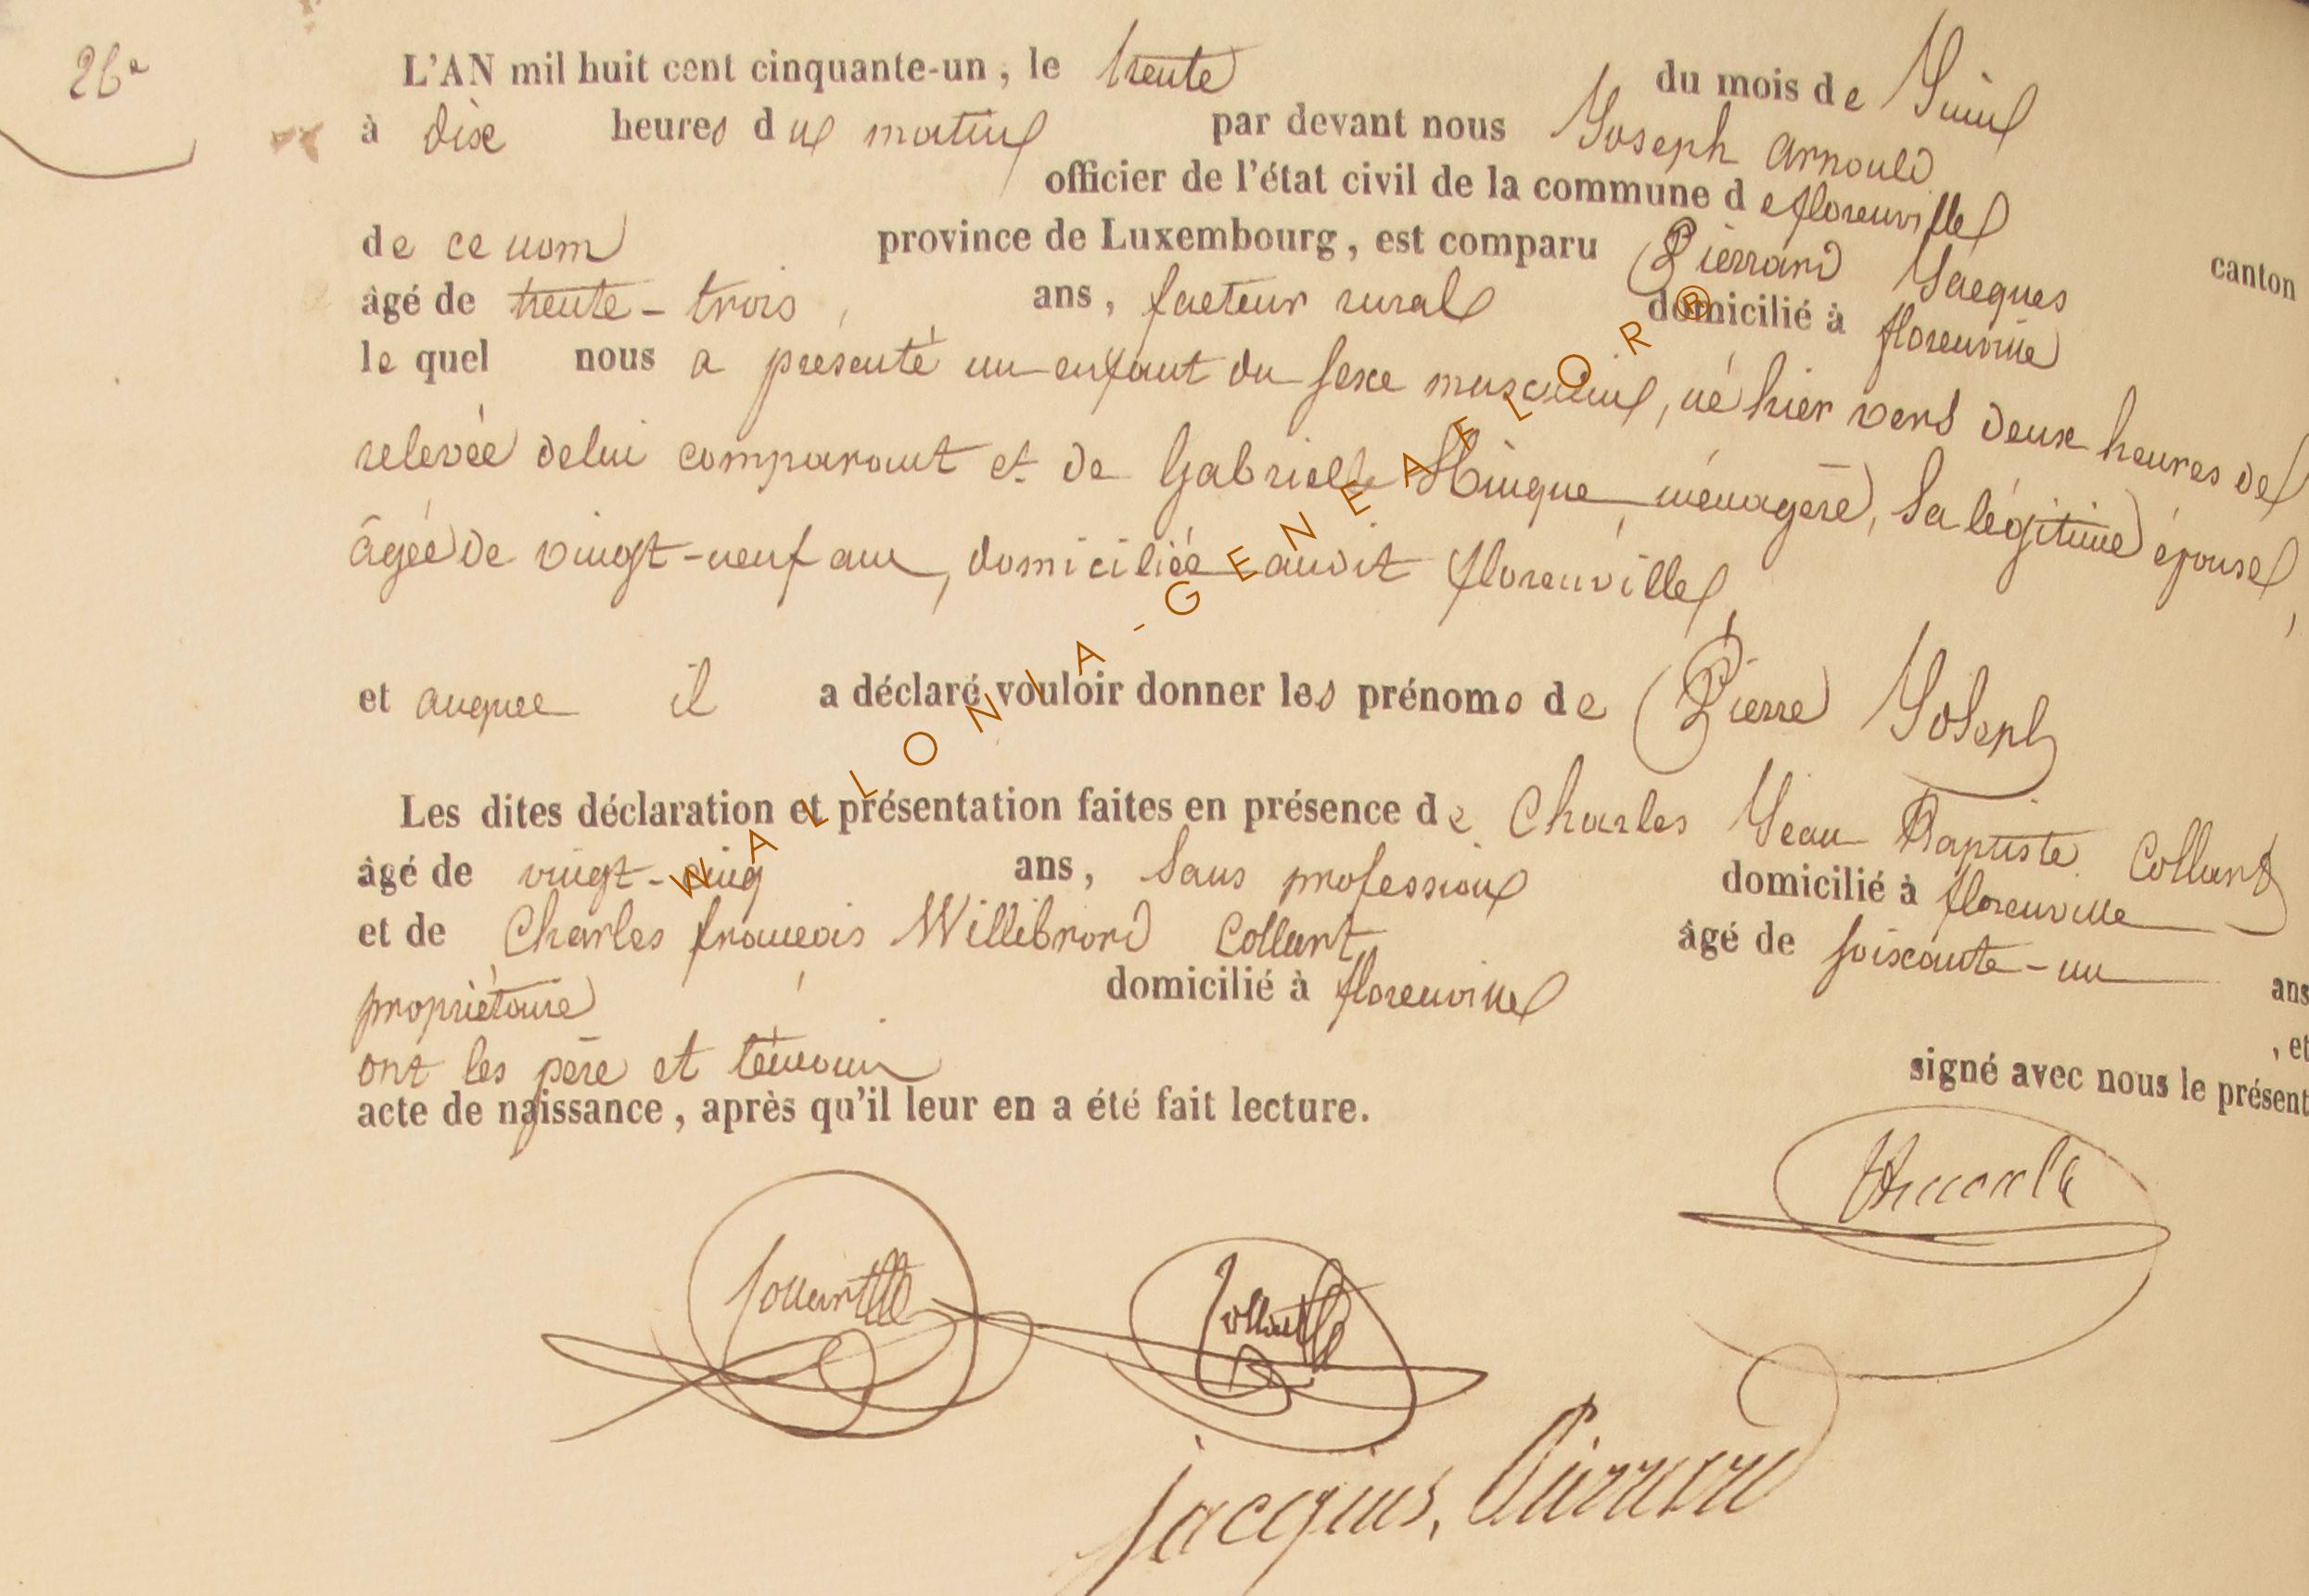 26e
L'AN mil huit cent cinquante-un, le trente du mois de Juin
à dix heures du matin par devant nous Joseph Arnould
officier de l'état civil de la commune de florenville
canton
de ce nom province de Luxembourg, est comparu Pierrard Jacques
âgé de trente-trois ans, facteur rural domicilié à florenville
le quel nous a présenté un enfant du sexe masculin, né hier vers deux heures de
relevée de lui comparant et de Gabrielle Hinque ménagère, sa légitime épouse,
âgée de vingt-neuf ans, domiciliée audit florenville,
et auquel il a déclaré vouloir donner les prénoms de Pierre Joseph
Les dites déclaration et présentation faites en présence de Charles Jean Baptiste Collart
âgé de vingt-cinq ans, sans profession domicilié à florenville
et de Charles françois Willibrord Collart âgé de soixante-un ans
propriétaire domicilié à florenville , et
ont les père et témoin signé avec nous le présent
acte de naissance, après qu'il leur en a été fait lecture.
Collart Collart
jacques, Pierrard
WALLONIA-GENEALO.R®